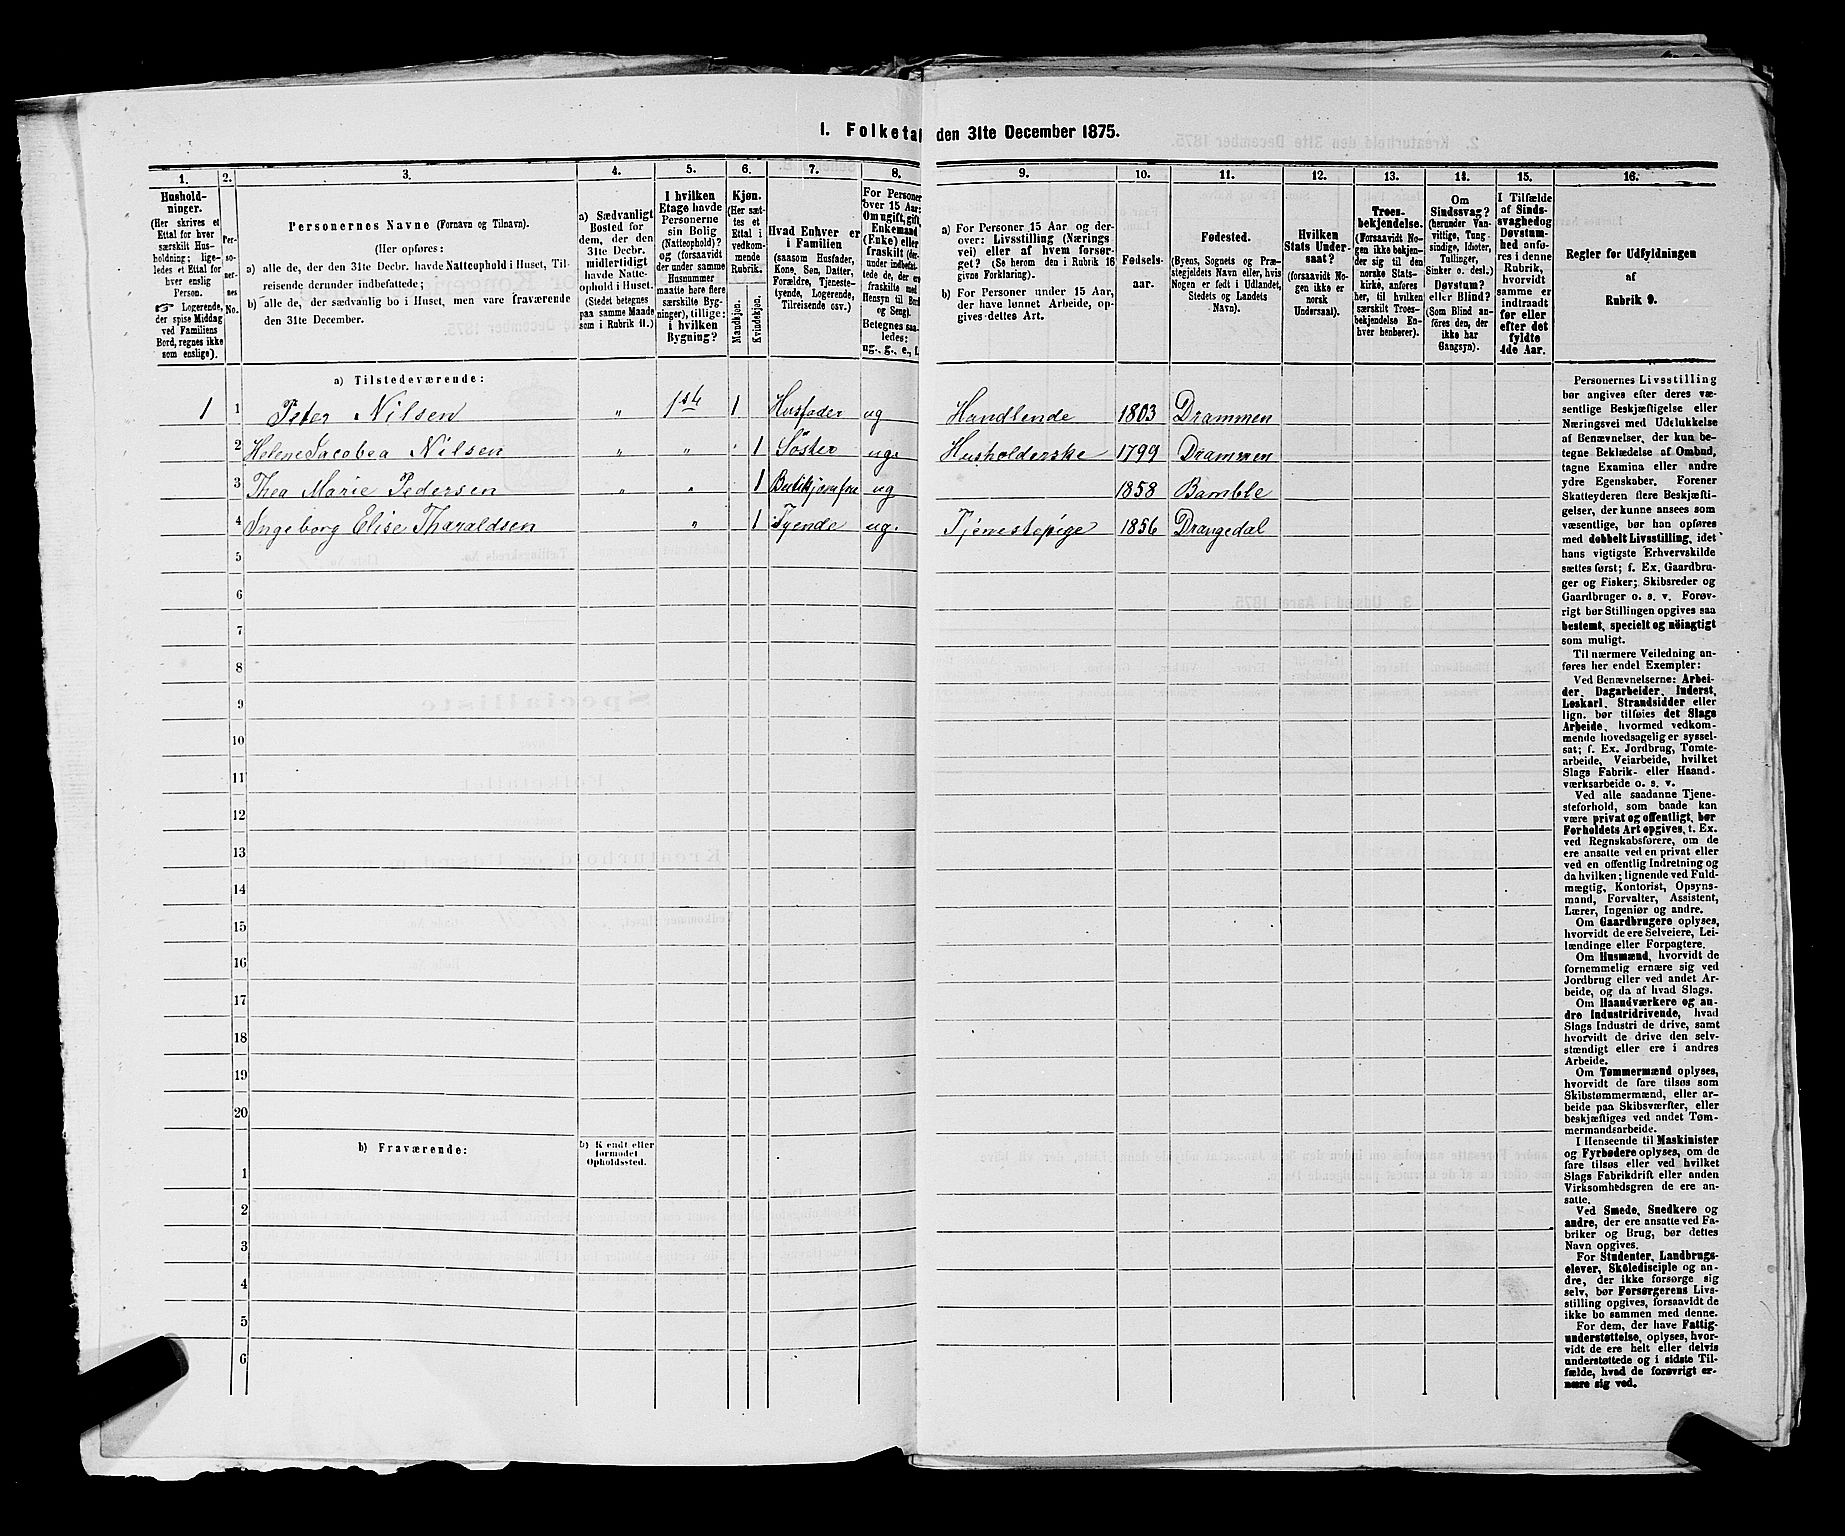 I. Folketal den 31te December 1875.
1. 2. 3. 4. 5. 6. 7. 8. 9. 10. 11. 12. 13. 14. 15. 16.
Hushold-
ninger.
(Her skrives et
Ettal for hver
særskilt Hus-
holdning; lige-
ledes et Ettal for
hver enslig
Person.
☞ Logerende,
der spise Middag
ved Familiens
Bord, regnes ikke
som enslige).
Per-
so-
ner-
nes
No.
Personernes Navne (Fornavn og Tilnavn).
(Her opføres:
a) alle de, der den 31te Decbr. havde Natteophold i Huset, Til-
reisende derunder indbefattede;
b) alle de, der sædvanlig bo i Huset, men vare fraværende
den 31te December.
a) Sædvanligt
Bosted for
dem, der den
31te Decbr.
midlertidigt
havde Natte-
ophold i Huset.
(Stedet betegnes
paa samme Maade
som i Rubrik 11.)
I hvilken
Etage havde
Personerne
sin Bolig
(Natteophold)?
og (forsaavidt
der under samme
Husnummer
maatte høre flere
særskilte Byg-
ninger), tillige:
i hvilken
Bygning?
Kjøn.
(Her sæt-
tes et
Ettal i
vedkom-
mende
Rubrik.
Mandkjøn.
Kvindekjøn.
Hvad Enhver er
i Familien
(saasom Husfader,
Kone, Søn, Datter,
Forældre, Tjeneste-
tyende, Logerende,
Tilreisende osv.)
For Personer
over 15 Aar:
Om ugift, gift,
Enkemand
(Enke) eller
fraskilt (der-
under indbefat-
tede de, der ere
fraskilte med
Hensyn til Bord
og Seng).
Betegnes saa-
ledes:
ug., g., e., f.
a) For Personer 15 Aar og der-
over: Livsstilling (Nærings-
vei) eller af hvem forsør-
get? (Se herom den i Rubrik 16
givne Forklaring).
b) For Personer under 15 Aar,
der have lønnet Arbeide, op-
gives dettes Art.
Fødsels-
aar.
Fødested.
(Byens, Sognets og Præ-
stegjeldets Navn eller, hvis
Nogen er født i Udlandet,
Stedets og Landets
Navn).
Hvilken
Stats Under-
saat?
(forsaavidt No-
gen ikke er
norsk
Undersaat).
Troes-
bekjendelse.
(Forsaavidt No-
gen ikke bekjen-
der sig til den
norske Stats-
kirke, anføres
her, til hvilken
særskilt Troes-
bekjendelse En-
hver henhører).
Om
Sindssvag?
(herunder Van-
vittige, Tung-
sindige, Idioter,
Tullinger,
Sinker o. desl.)
Døvstum?
eller Blind?
(Som Blind an-
føres den, der
ikke har
Gangsyn).
I Tilfælde
af Sinds-
svaghed og
Døvstum-
hed anfø-
res i denne
Rubrik,
hvorvidt
samme er
indtraadt
før eller
efter det
fyldte
4de Aar.
Regler for Udfyldningen
af
Rubrik 9.
a) Tilstedeværende:
1 1 Peter Nilsen " 1ste 1 Husfader ug Handlende 1803 Drammen
2 Helene Jacobea Nilsen " " 1 Søster ug. Husholderske 1799 Drammen
3 Thea Marie Pedersen " " 1 Butikjomfru ug 1858 Bamble
4 Ingeborg Elise Tharaldsen " 1 Tyende ug. Tjenestepige 1856 Drangedal
5
6
7
8
9
10
11
12
13
14
15
16
17
18
19
20
b) Fraværende:
b) Kjendt eller
formodet
Opholdssted.
1
2
3
4
5
6
Personernes Livsstilling
bør angives efter deres væ-
sentlige Beskjæftigelse eller
Næringsvei med Udelukkelse
af Benævnelser, der kun be-
tegne Beklædelse af Ombud,
tagne Examina eller andre
ydre Egenskaber. Forener
Skatteyderen flere Beskjæfti-
gelser, der kunne ansees som
væsentlige, bør han opføres
med dobbelt Livsstilling, idet
hans vigtigste Erhvervskilde
sættes først; f. Ex. Gaardbru-
ger og Fisker; Skibsreder og
Gaardbruger o. s. v. Forøv-
rigt bør Stillingen opgives saa
bestemt, specielt og nøiagtigt
som muligt.
Til nærmere Veiledning an-
føres her endel Exempler:
Ved Benævnelserne: Arbei-
der, Dagarbeider, Inderst,
Løskarl, Strandsidder eller
lign. bør tilføies det Slags
Arbeide, hvormed vedkom-
mende hovedsagelig er syssel-
sat; f. Ex. Jordbrug, Tomte-
arbeide, Veiarbeide, hvilket
Slags Fabrik- eller Haand-
værksarbeide o. s. v.
Ved alle saadanne Tjene-
steforhold, som baade kan
være privat og offentligt, bør
Forholdets Art opgives, t. Ex.
ved Regnskabsførere, om de
ere ansatte ved en privat eller
ved en offentlig Indretning og
da hvilken; lignende ved Fuld-
mægtig, Kontorist, Opsyns-
mand, Forvalter, Assistent,
Lærer, Ingeniør og andre.
Om Gaardbrugere oplyses,
hvorvidt de ere Selveiere, Lei-
lændinge eller Forpagtere.
Om Husmænd, hvorvidt de
fornemmelig ernære sig ved
Jordbrug eller ved andet Ar-
beide, og da af hvad Slags.
Om Haandværkere og an-
dre Industridrivende, hvad
Slags Industri de drive, samt
hvorvidt de drive den selv-
stændigt eller ere i andres
Arbeide.
Om Tømmermænd oplyses,
hvorvidt de fare tilsøs som
Skibstømmermænd, eller ar-
beide paa Skibsværfter, eller
beskjæftiges ved andet Tøm-
mermandsarbeide.
I Henseende til Maskinister
og Fyrbødere oplyses, om de
fare tilsøs eller ved hvilket
Slags Fabrikdrift eller anden
Virksomhedsgren de ere an-
satte.
Ved Smede, Snedkere og
andre, der ere ansatte ved Fa-
briker og Brug, bør dettes
Navn opgives.
For Studenter, Landbrugs-
elever, Skoledisciple og an-
dre, der ikke forsørge sig
selv, bør Forsørgerens Livs-
stilling opgives, forsaavidt de
ikke bo sammen med denne.
For dem, der have Fattig-
understøttelse, oplyses, hvor-
vidt de ere helt eller delvis
understøttede og i sidste Til-
fælde, hvad de forøvrigt er-
nære sig ved.